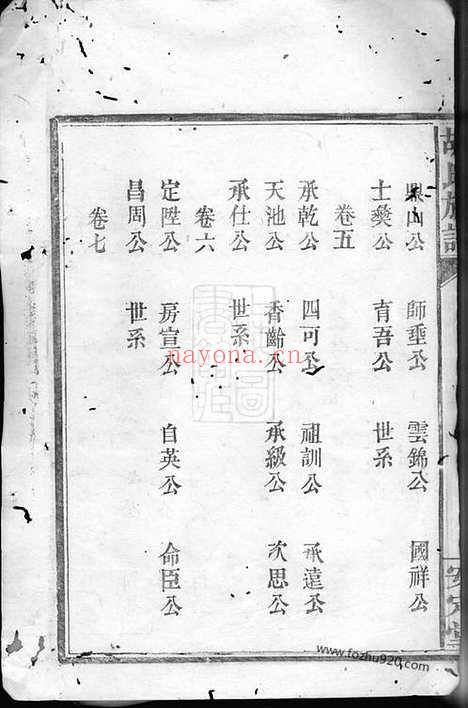 胡氏族譜
安定堂
鼎山公 師垂公 雲錦公 國祥公
士奬公 育吾公 世系
卷五
承乾公 四可公 祖訓公 承遠公
天池公 香齡公 承級公 次思公
承仕公 世系
卷六
定陞公 房宣公 自英公 命臣公
昌周公 世系
卷七
nayona.cn
www.fozhu920.com